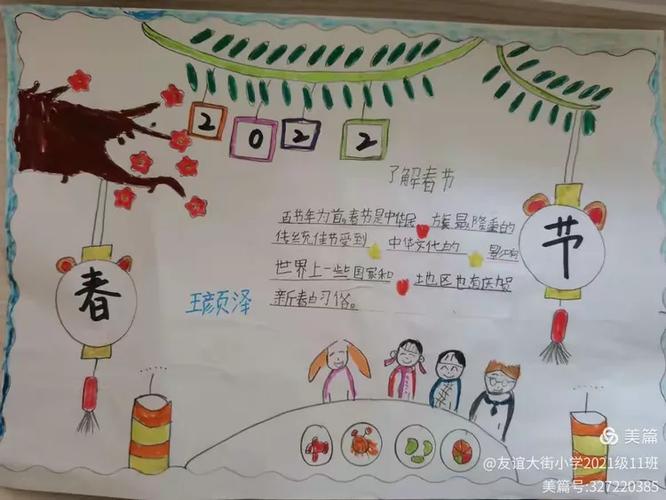 2022
了解春节
百节年为首,春节是中华民 族最隆重的
传统佳节受到 中华文化的 影响
世界上一些国家和 地区也有庆贺
新春的习俗。
春
节
王颜泽
美篇
@友谊大街小学2021级11班
美篇号:327220385